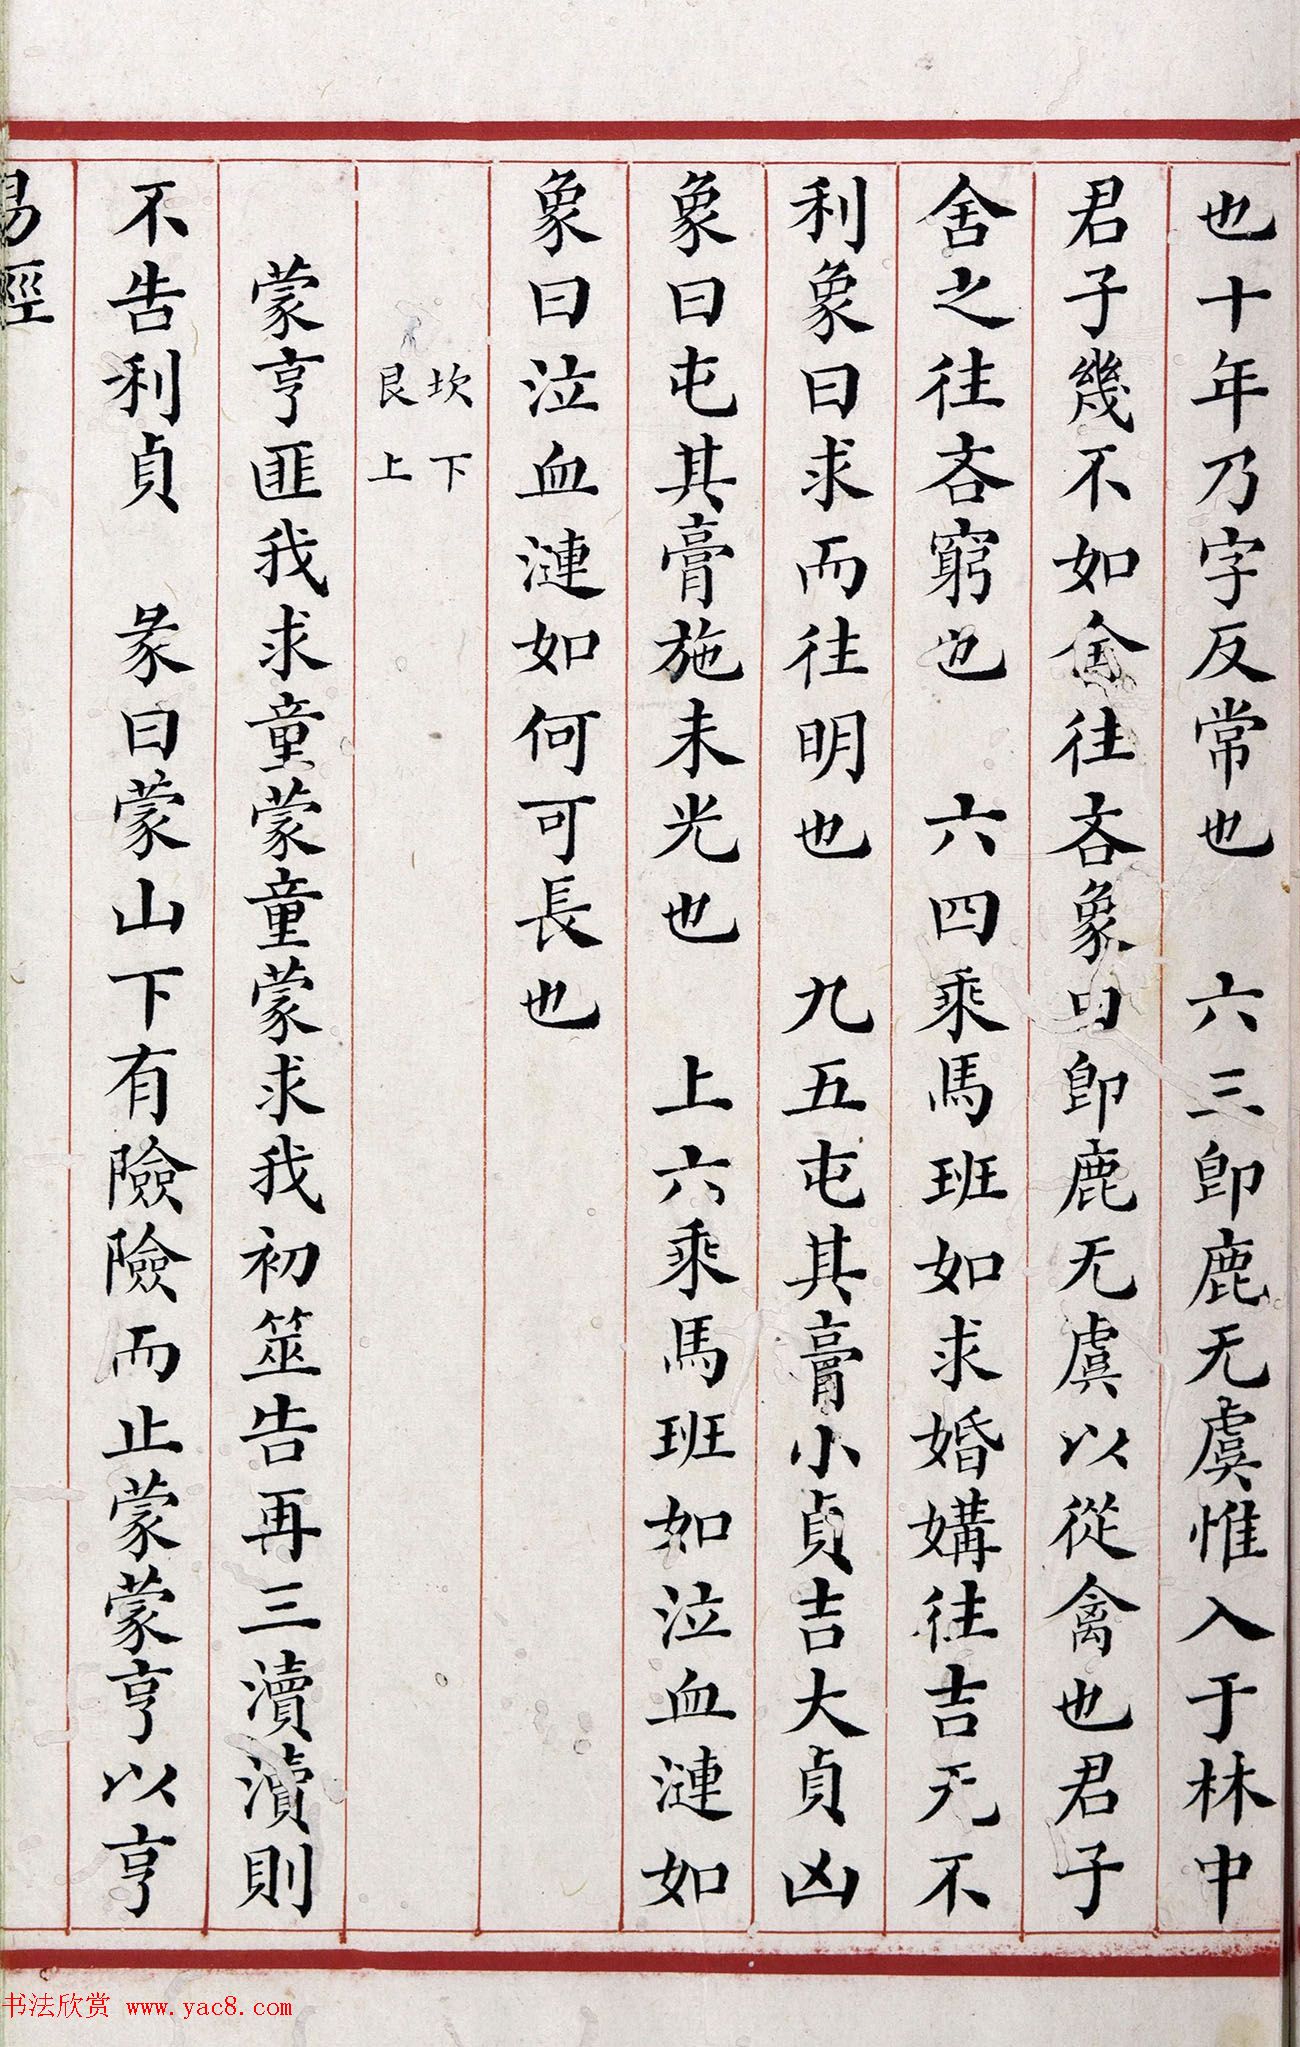 也十年乃字反常也　六三卽鹿无虞惟入于林中
君子幾不如舍往吝象曰卽鹿无虞以從禽也君子
舍之往吝窮也　六四乘馬班如求婚媾往吉无不
利象曰求而往明也　九五屯其膏小貞吉大貞凶
象曰屯其膏施未光也　上六乘馬班如泣血漣如
象曰泣血漣如何可長也
坎下
艮上
蒙亨匪我求童蒙童蒙求我初筮告再三瀆瀆則
不告利貞　彖曰蒙山下有險險而止蒙蒙亨以亨
易經
书法欣赏 www.yac8.com